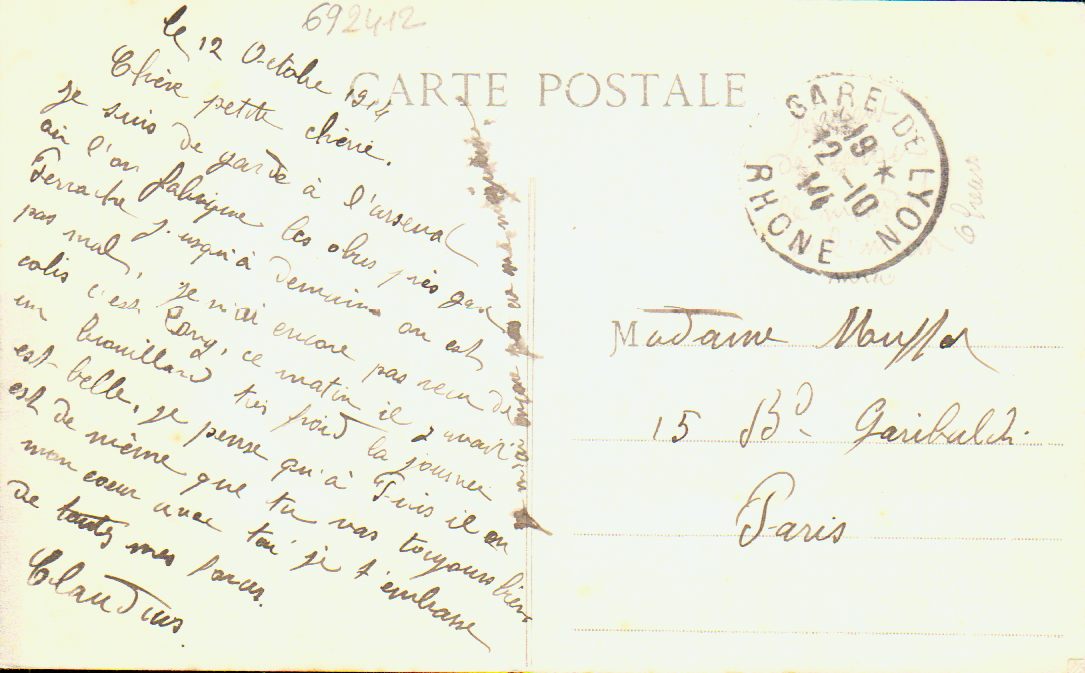 692412
le 12 Octobre 1914
CARTE POSTALE
Chère petite chérie.
je suis de garde à l'arsenal
où l'on fabrique les obus près gare
Perrache jusqu'à demain on est
pas mal, je n'ai encore pas reçu de
colis c'est long, ce matin il y avait
un brouillard très froid la journée
est belle, je pense qu'à Paris il en
est de même que tu vas toujours bien
mon coeur avec toi je t'embrasse
de toutes mes forces.
Claudius.
GARE DE LYON
19
12-10
14
RHONE
Madame Mouffol
15 Bd Garibaldi.
Paris